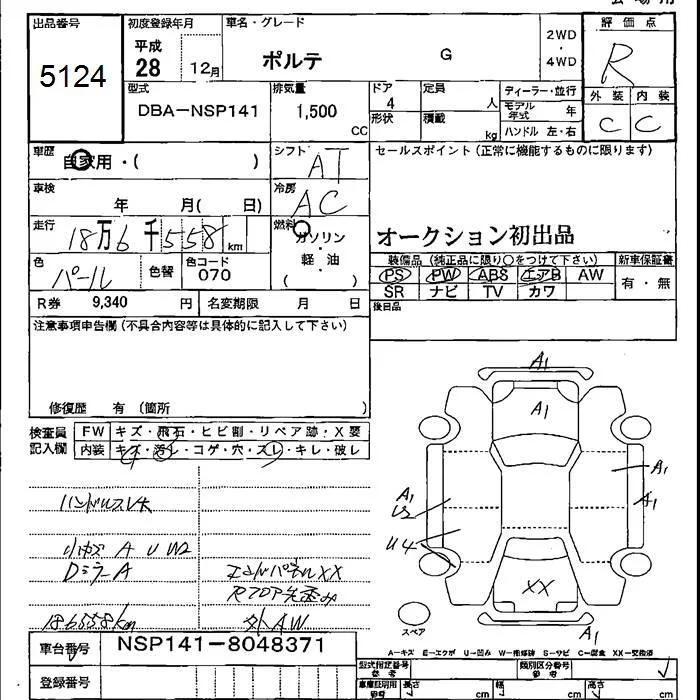 出品番号 初度登録年月 車名・グレード 評価点
5124 平成 28 12月 ポルテ G 2WD・4WD R
外装 内装
型式 排気量 ドア 定員 ディーラー・並行 C C
DBA-NSP141 1,500 CC 4 人 モデル年式 年
形状 積載 kg ハンドル 左・右
車歴 自家用・( ) シフト AT セールスポイント(正常に機能するものに限ります)
車検 年 月( 日) 冷房 AC
走行 18万6千558km 燃料 ガソリン・軽油 ( ) オークション初出品
色 パール 色替 色コード 070 装備品(純正品に限り○をつけて下さい) 新車保証書
PS PW ABS エアB AW 有・無
SR ナビ TV カワ
R券 9,340 円 名変期限 月 日 後日品
注意事項申告欄(不具合内容等は具体的に記入して下さい)
修復歴 有 (箇所
検査員記入欄 FW キズ・飛石・ヒビ割・リペア跡・X要
内装 キズ・汚レ・コゲ・穴・スレ・キレ・破レ
ハンドルスレ大
小キズ A U W2
Dミラー A エンドパネルXX
Rフロア
186558km 外AW
A1
A1
A1
A1
A1
U2
U4
XX
スペア
A1
A-キズ E-エクボ U-凹み W-補修跡 S-サビ C-腐食 XX-交換済
車台番号 NSP141-8048371
登録番号
型式指定番号 類別区分番号
長さ cm 幅 cm 高さ cm